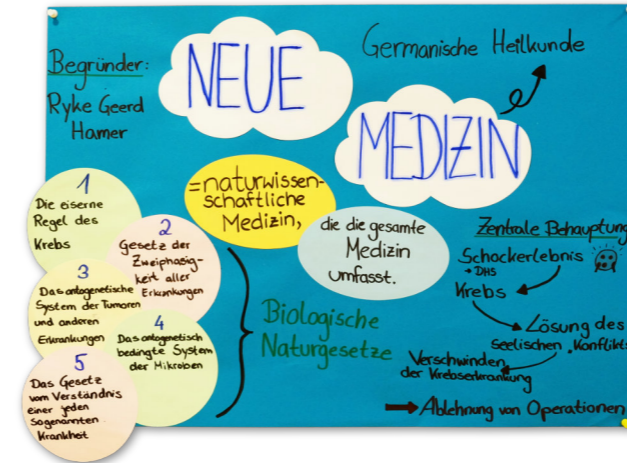 Begründer:
Ryke Geerd
Hamer
NEUE
MEDIZIN
Germanische Heilkunde
=naturwissen-
schaftliche
Medizin,
die die gesamte
Medizin
umfasst.
1
Die eiserne
Regel des
Krebs
2
Gesetz der
Zweiphasig-
keit aller
Erkrankungen
3
Das ontogenetische
System der Tumoren
und anderen
Erkrankungen
4
Das ontogenetisch
bedingte System
der Mikroben
5
Das Gesetz
vom Verständnis
einer jeden
sogenannten
Krankheit
Biologische
Naturgesetze
Zentrale Behauptung
Schockerlebnis
→ DHS
Krebs
Lösung des
seelischen "Konflikts
Verschwinden
der Krebserkrankung
→ Ablehnung von Operationen